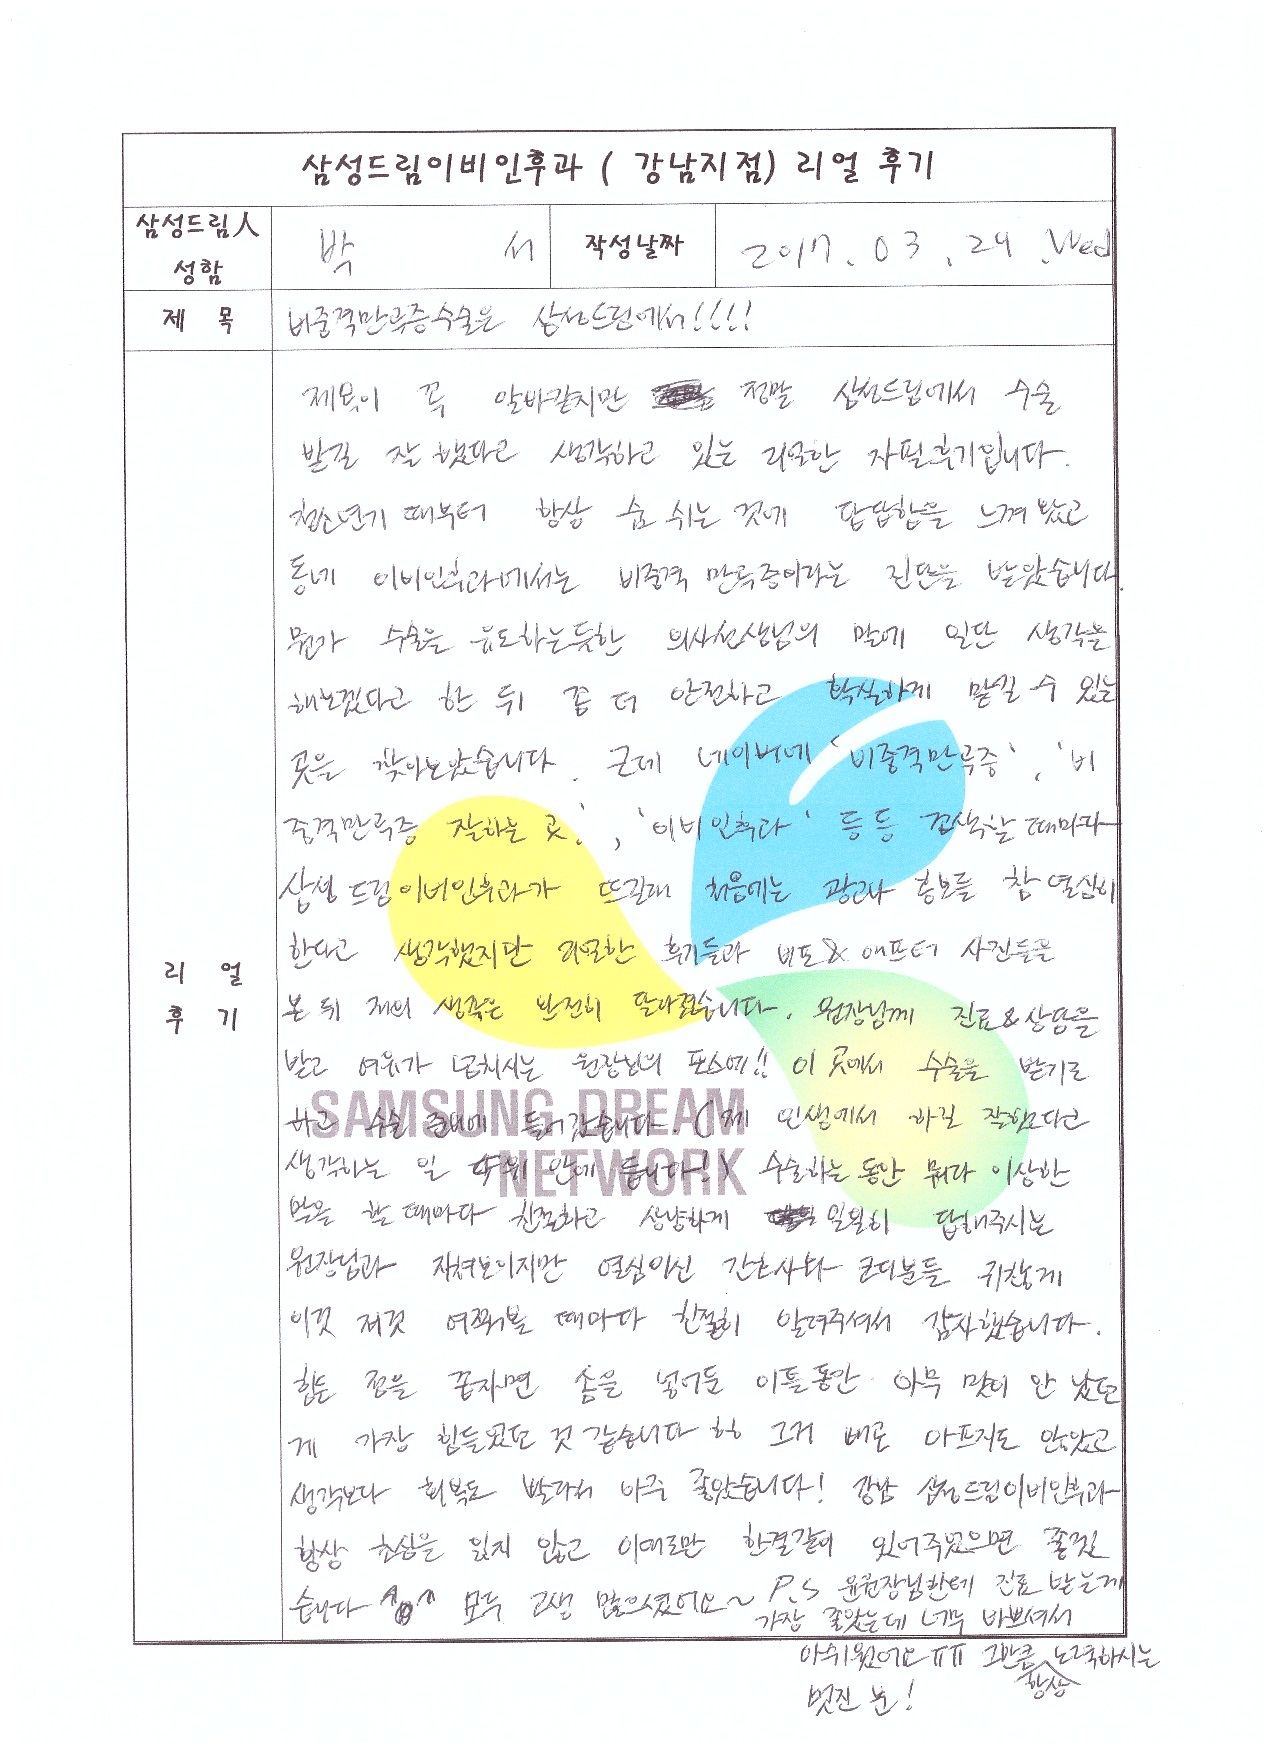 삼성드림이비인후과 ( 강남지점) 리얼 후기
삼성드림人
성함
박 서
작성날짜
2017. 03. 29 .Wed
제 목
비중격만곡증수술은 삼성드림에서!!!!
리 얼
후 기
제목이 꼭 알바같지만 정말 삼성드림에서 수술
받길 잘 했다고 생각하고 있는 리얼한 자필후기입니다.
청소년기 때부터 항상 숨 쉬는 것에 답답함을 느껴 왔고
동네 이비인후과에서는 비중격 만곡증이라는 진단을 받았습니다.
뭔가 수술을 유도하는듯한 의사선생님의 말에 일단 생각을
해보겠다고 한 뒤 좀 더 안전하고 확실하게 맡길 수 있는
곳을 찾아보았습니다. 근데 네이버에 '비중격만곡증', '비
중격만곡증 잘하는 곳', '이비인후과' 등등 검색할 때마다
삼성 드림이비인후과가 뜨길래 처음에는 광고랑 홍보를 참 열심히
한다고 생각했지만 리얼한 후기들과 비포&애프터 사진들을
본 뒤 저의 생각은 완전히 달라졌습니다. 원장님께 진료&상담을
받고 여유가 넘치시는 원장님의 포스에!! 이 곳에서 수술을 받기로
하고 수술 준비에 들어갔습니다. (제 인생에서 하길 잘했다고
생각하는 일 순위 안에 듭니다!) 수술하는 동안 뭐라 이상한
말을 할 때마다 친절하고 상냥하게 일일히 답해주시는
원장님과 지쳐보이지만 열심이신 간호사와 코디분들 귀찮게
이것 저것 여쭤볼 때마다 친절히 알려주셔서 감사했습니다.
힘든 점을 꼽자면 솜을 넣어둔 이틀동안 아무 맛이 안 났던
게 가장 힘들었던 것 같습니다 ㅎㅎ 그거 빼곤 아프지도 않았고
생각보다 회복도 빨라서 아주 좋았습니다! 강남 삼성드림이비인후과
항상 초심을 잃지 않고 이대로만 한결같이 있어주셨으면 좋겠
습니다 ^^ 모두 고생 많으셨어요~ P.S 윤원장님한테 진료 받는게
가장 좋았는데 너무 바쁘셔서
아쉬웠어요ㅠㅠ 그만큼 항상 노력하시는
멋진 분!
SAMSUNG DREAM
NETWORK